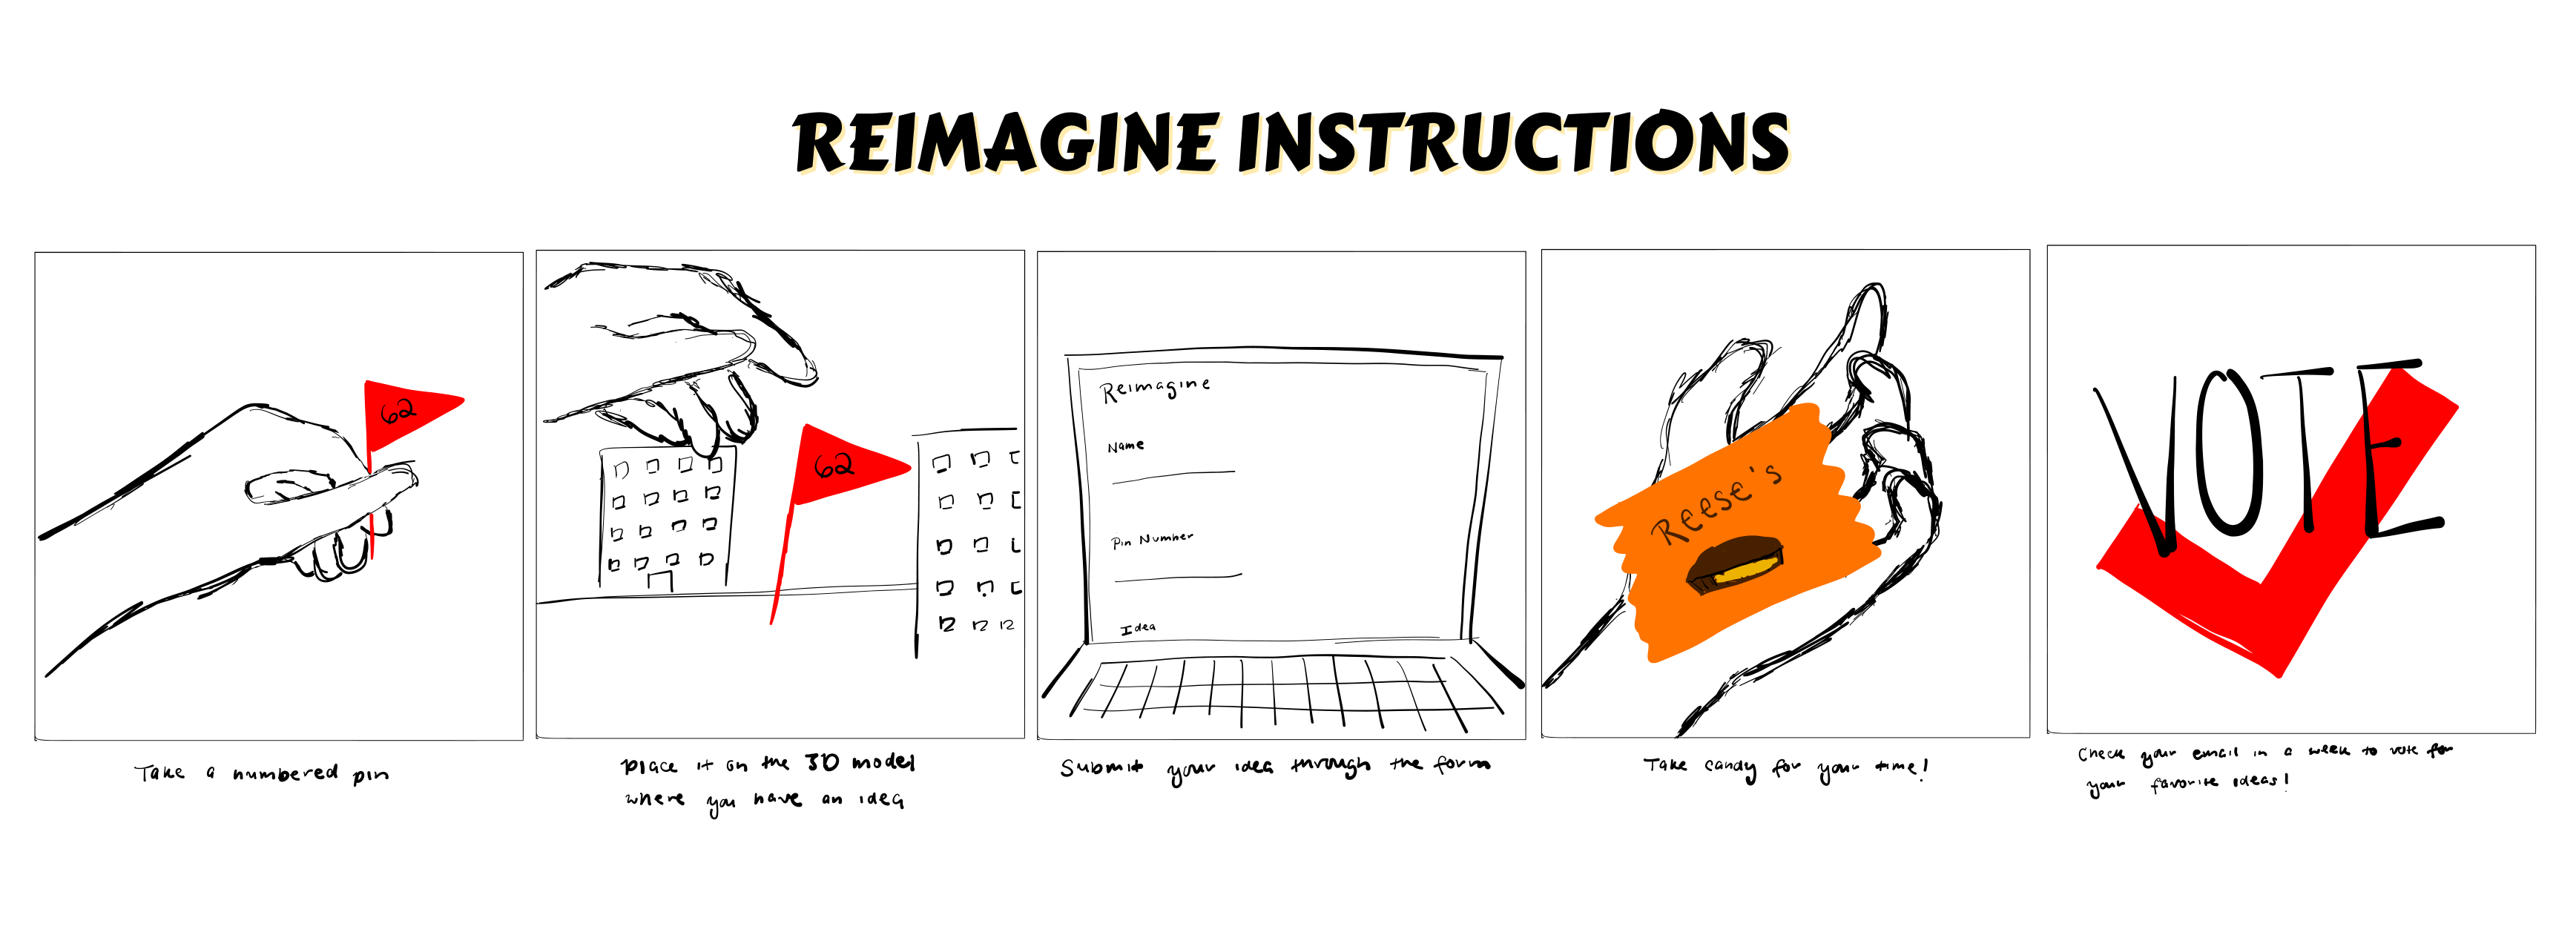 REIMAGINE INSTRUCTIONS
62
Take a numbered pin
62
Place it on the 3D model
where you have an idea
Reimagine
Name
Pin Number
Idea
Submit your idea through the form
REESE'S
Take candy for your time!
VOTE
Check your email in a week to vote for
your favorite ideas!